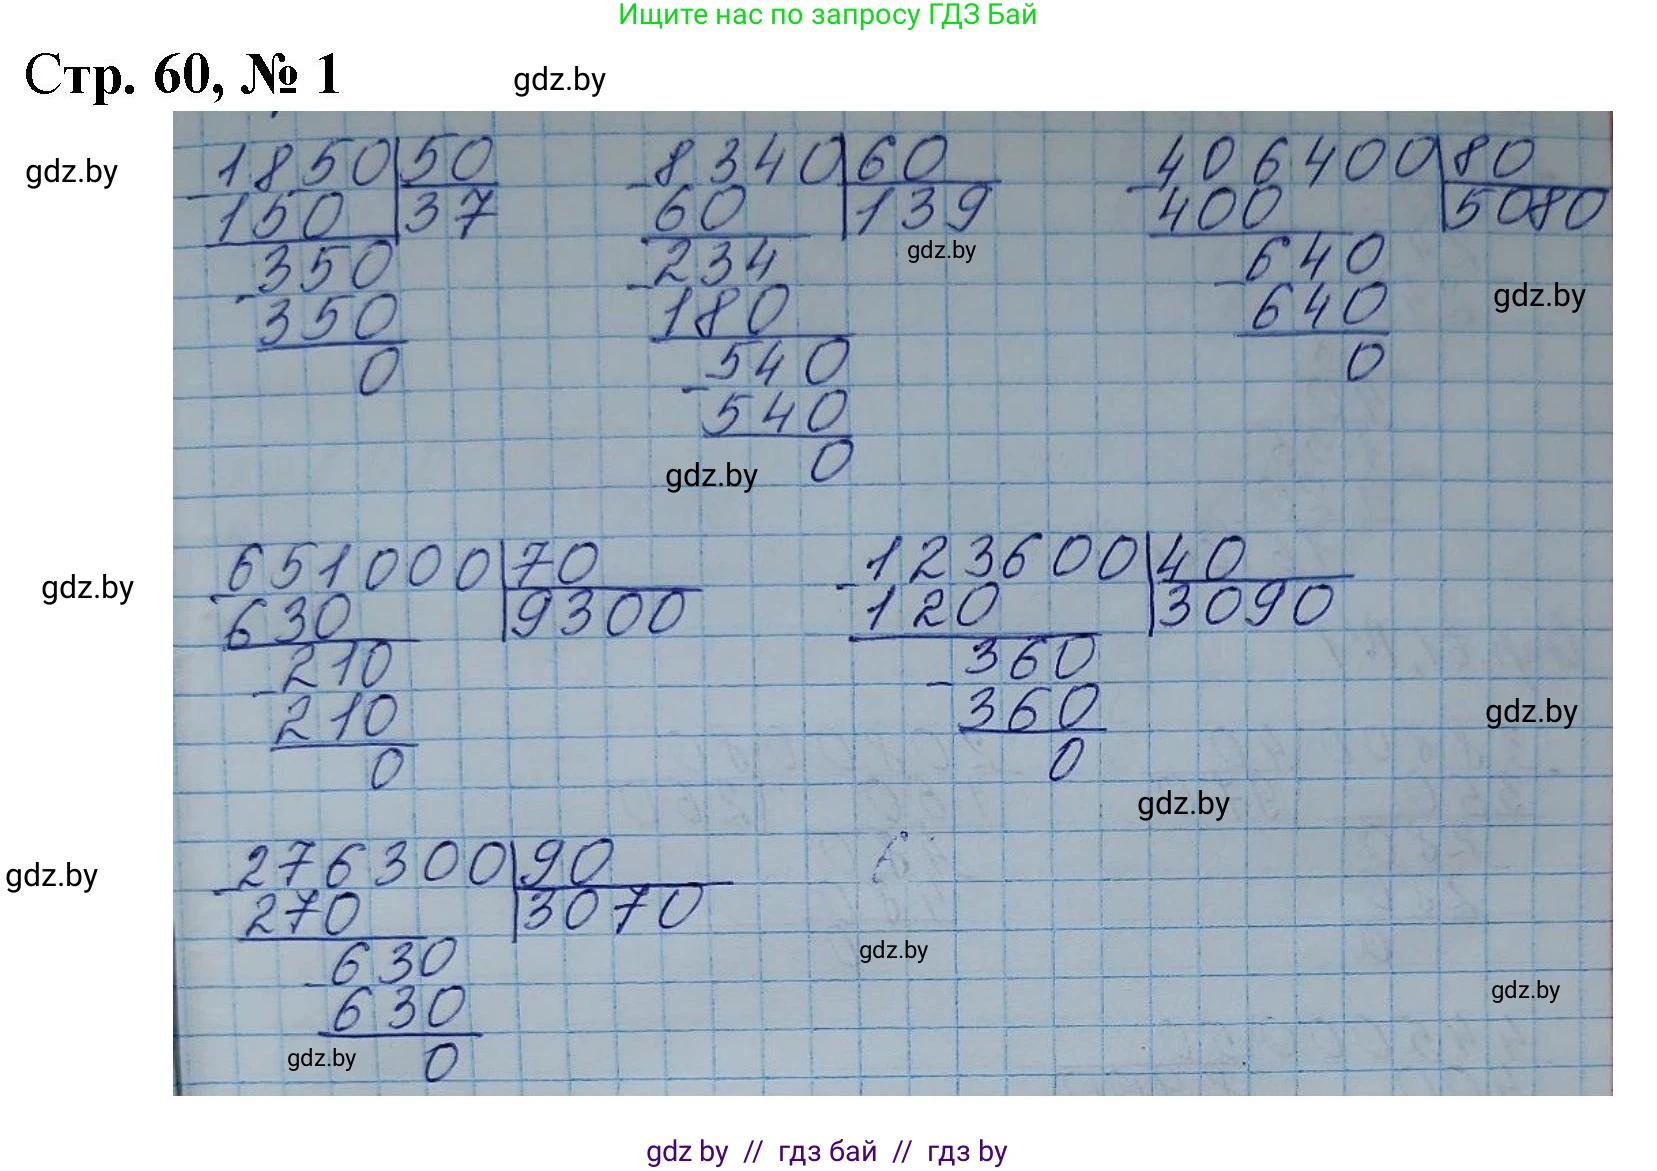 Ищите нас по запросу ГДЗ Бай
Стр. 60, № 1
gdz.by
gdz.by
1850 50
- 150 37
350
- 350
0
8340 60
- 60 139
234
- 180
540
- 540
0
gdz.by
gdz.by
406400 80
- 400 5080
640
- 640
0
gdz.by
gdz.by
651000 70
- 630 9300
210
- 210
0
123600 40
- 120 3090
360
- 360
0
gdz.by
gdz.by
gdz.by
276300 90
- 270 3070
630
- 630
0
gdz.by
gdz.by
gdz.by
gdz by // гдз бай // гдз by